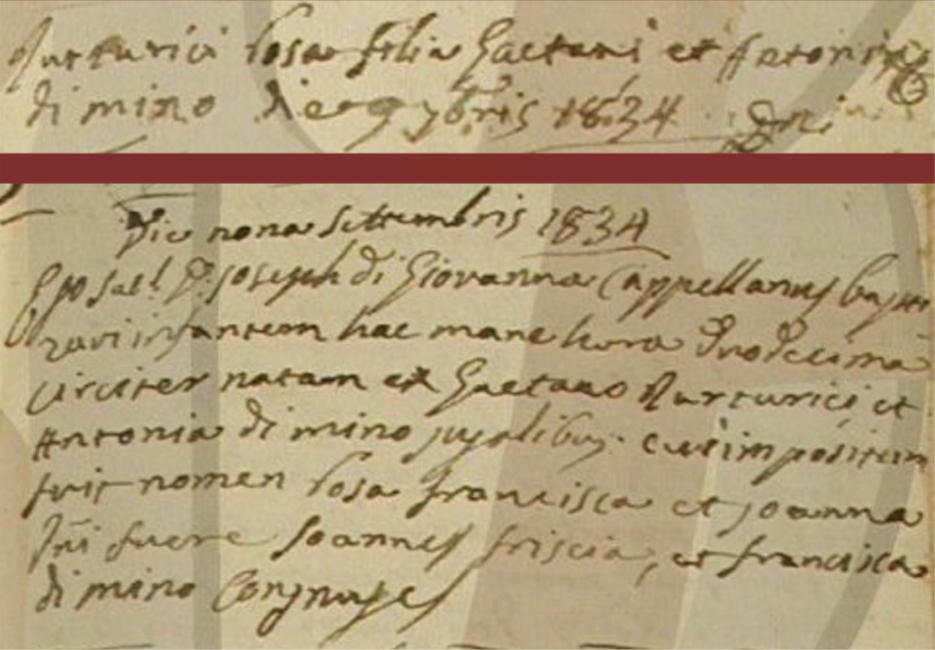 Turturici Rosa filia Gaetani et Antonia
di mino die 9 7bris 1834
Die nona Settembris 1834
Ego Sac! D. Joseph di Giovanna Cappellanus bapti
zavi infantem hac mane hora duodecima
circiter natam ex Gaetano Turturici et
Antonia di mino jugalibus cui impositum
fuit nomen Rosa francisca et joanna
fuere Joannes friscia, et francisca
di mino Conjuges